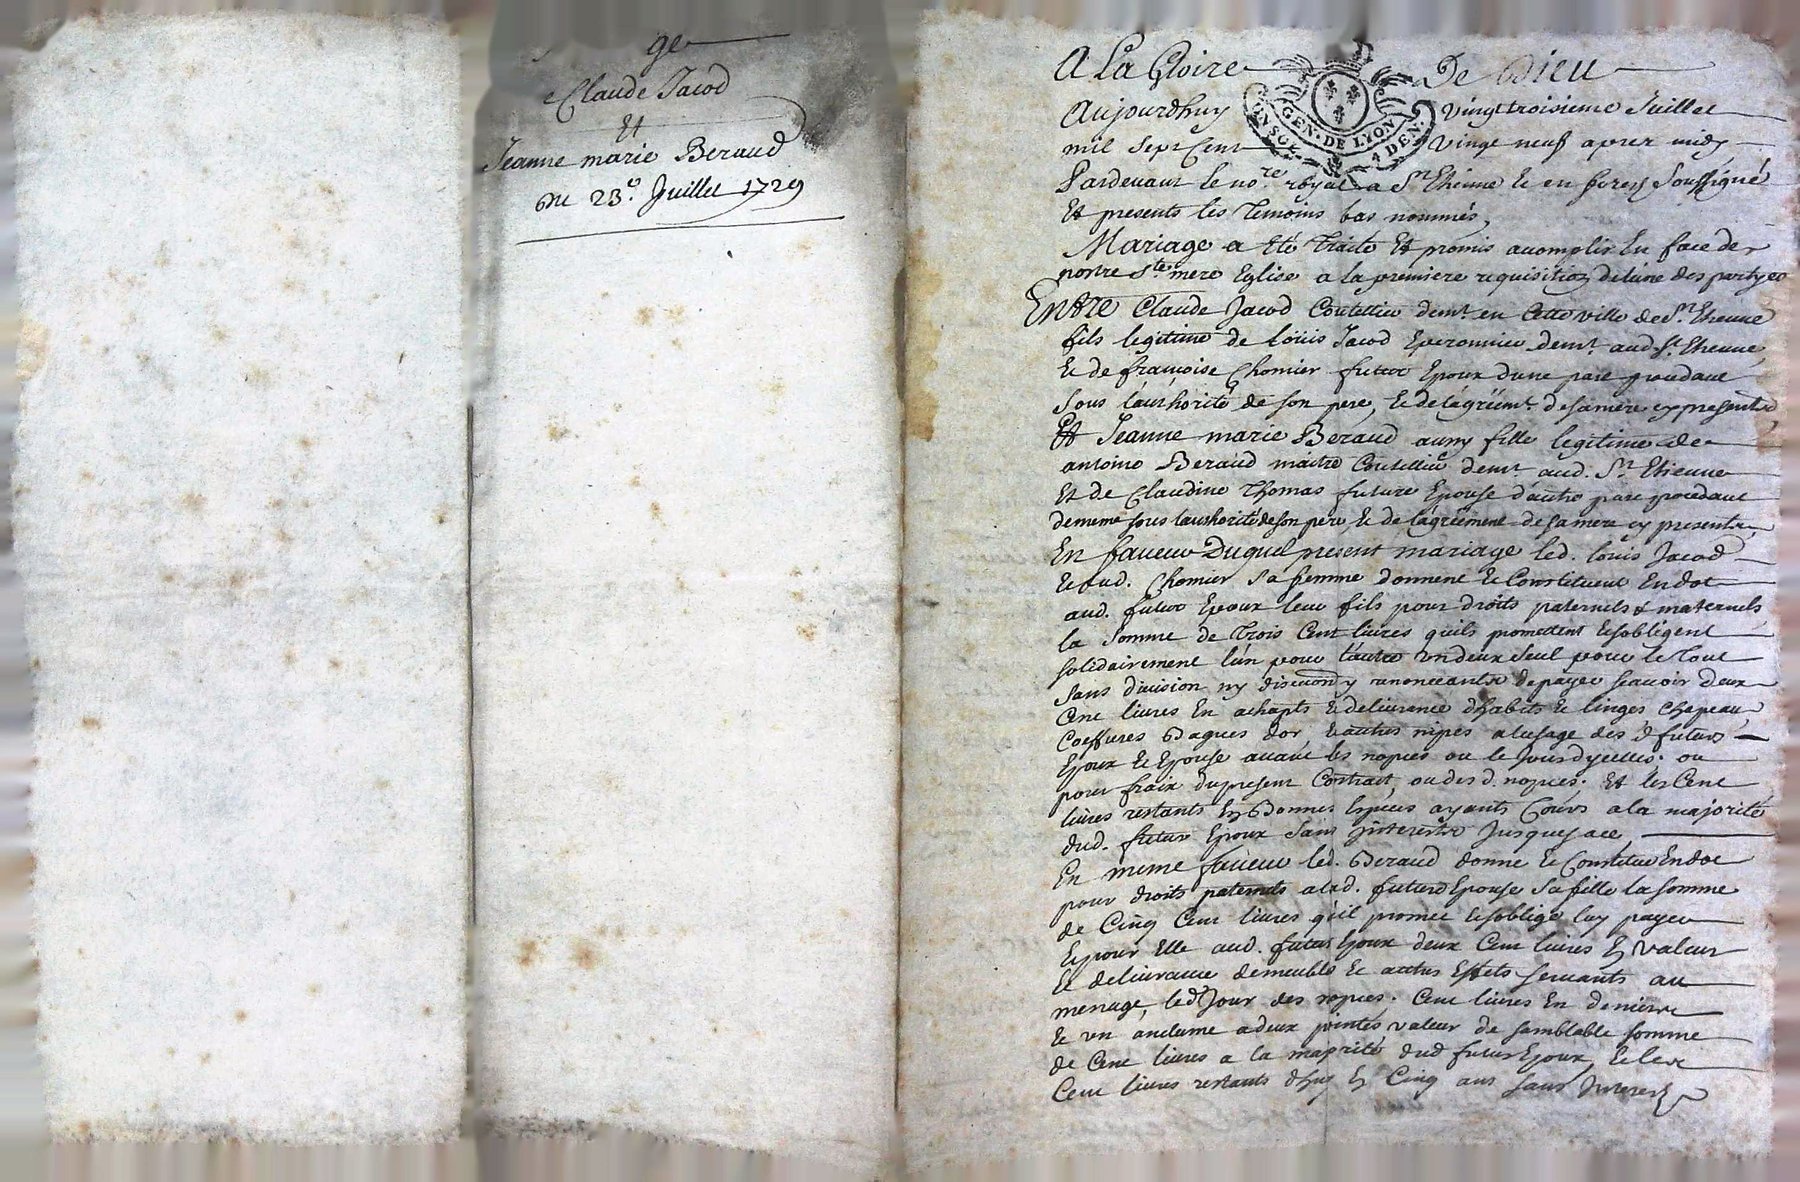 ge
Claude Jacod
Et
Jeanne marie Beraud
Du 23e. Juillet 1729
A La Gloire De Dieu
Aujourdhuy vingt troisieme Juillet
mil sept Cent vingt neuf apres midy
GEN. DE LYON
4 DEN.
Pardevant le nore. royal a St. Etienne & en forez soussigné
Et presents les temoins bas nommés,
Mariage a eté traité Et promis acomplir En face de
nostre Ste. mere Eglise a la premiere requisition de lune des partyes
Entre Claude Jacod Coutellier demt. en cette ville de St. Etienne
fils legitime de Loüis Jacod Eperonnier demt. aud. St. Etienne
& de françoise Chomier futur Epoux dune part procedant
sous l'authorité de son pere, & de lágréémt. de sa mere cy presents
Et Jeanne marie Beraud aussy fille legitime de
antoine Beraud maitre Coutellier demt. aud. St. Etienne
Et de Claudine Thomas future Epouse d'autre part procedant
de meme sous lauthorité de son pere, & de lágréément de sa mere cy presents,
En faveur Duquel present mariage led. louis Jacod
& lad. Chomier sa femme donnent & Constituent En dot
aud. futur Epoux leur fils pour droits paternels & maternels
la somme de trois Cent livres quils promettent & sobligent
solidairement lún pour l'autre un deux seul pour le tout
sans division ny discution y renonceants de payer scavoir deux
Cent livres En achapts & delivrance dhabits & linges chapeau
Coeffures Bagues dor & autres nipes a lusage des d. futurs
Epoux & Epouse avant les nopces ou le Jour dycelles. ou
pour fraix du present Contrait, ou des d. nopces. Et les Cent
livres restants En Bonnes Especes ayants Cours a la majorité
dud. futur Epoux sans Jnterests Jusques a ce,
En meme faveur led. Beraud donne & Constitue En dot
pour droits paternels a lad. future Epouse sa fille la somme
de Cinq Cent livres qu'il promet & soblige luy payer
& pour Elle aud. futur Epoux deux Cent livres En valeur
& delivrance de meuble & autres Effets servants au
menage, led. Jour des nopces. Cent livres En deniers
& un anclume a deux pointes valeur de semblable somme
de Cent livres a la majorité dud. futur Epoux, & les
Cent livres restants dhuy En Cinq ans sans Jnterest